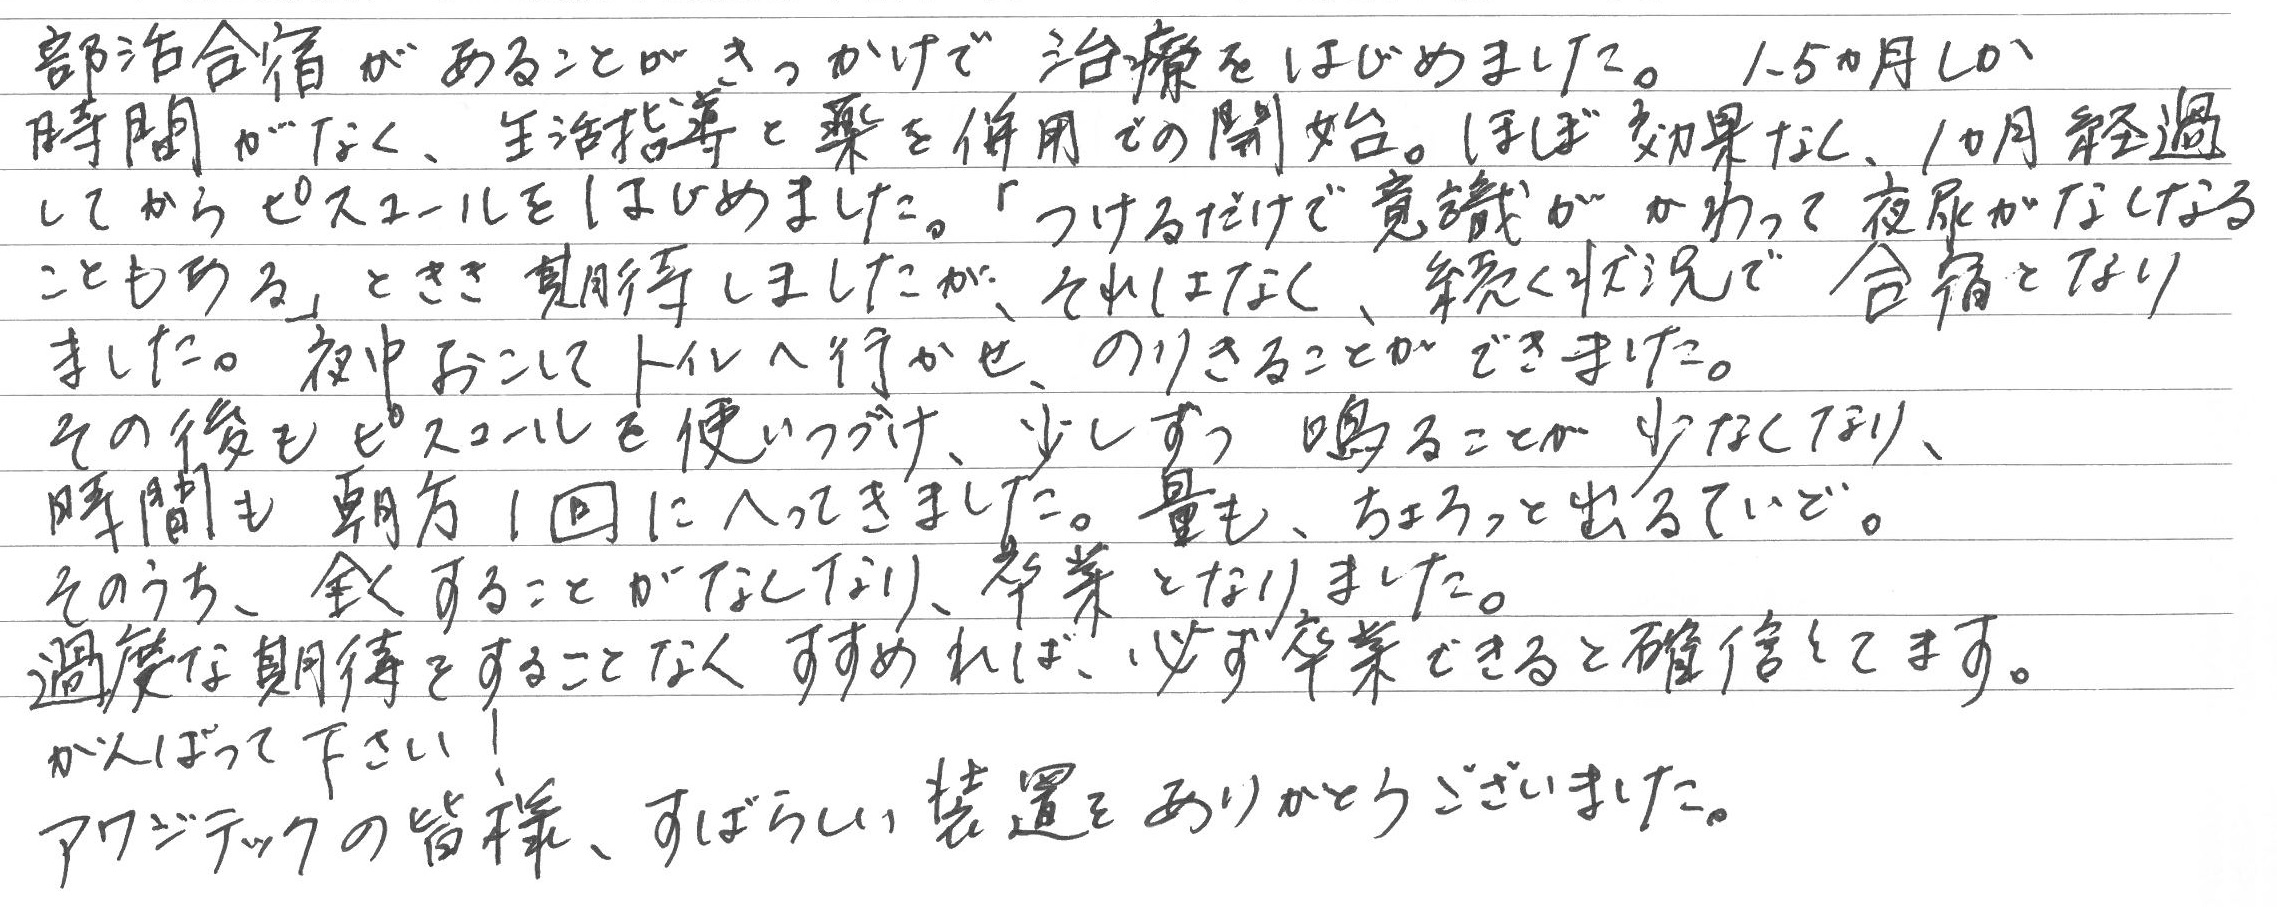 部活合宿があることがきっかけで治療をはじめました。1.5ヵ月しか
時間がなく、生活指導と薬を併用での開始。ほぼ効果なく、1ヵ月経過
してからピスコールをはじめました。「つけるだけで意識がかわって夜尿がなくなる
こともある」ときき期待しましたが、それはなく、続く状況で合宿となり
ました。夜中おこしてトイレへ行かせ、のりきることができました。
その後もピスコールを使いつづけ、少しずつ鳴ることが少なくなり、
時間も朝方1回にへってきました。量も、ちょろっと出るていど。
そのうち、全くすることがなくなり、卒業となりました。
過度な期待をすることなくすすめれば、必ず卒業できると確信してます。
がんばって下さい！
アワジテックの皆様、すばらしい装置をありがとうございました。